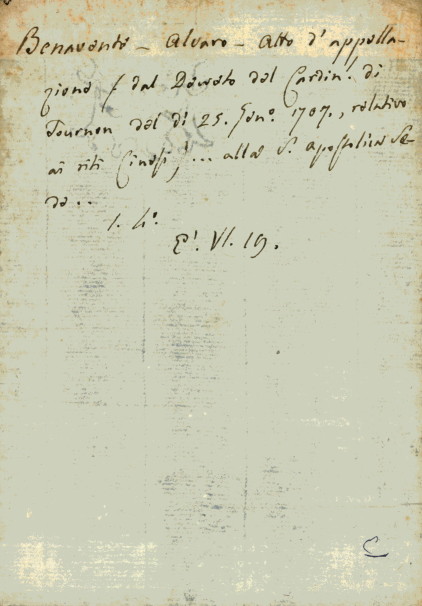 Benavente - Alvaro - Atto d'appella-
zione dal Decreto del Cardin.l di
Tournon del dì 25. Gen.o 1707., relativo
ai riti Cinesi, ... alla S. apostolica Se-
de..
1. 4.o
E'. VI. 19.
C